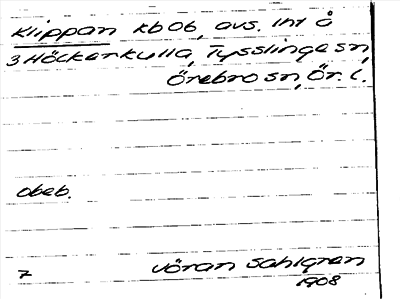 Klippan Kbob, avs. int å
3 Höckerkulla, Tysslinge sn,
Örebro sn, Ör. l.
obeb.
7 Jöran Sahlgren
1908